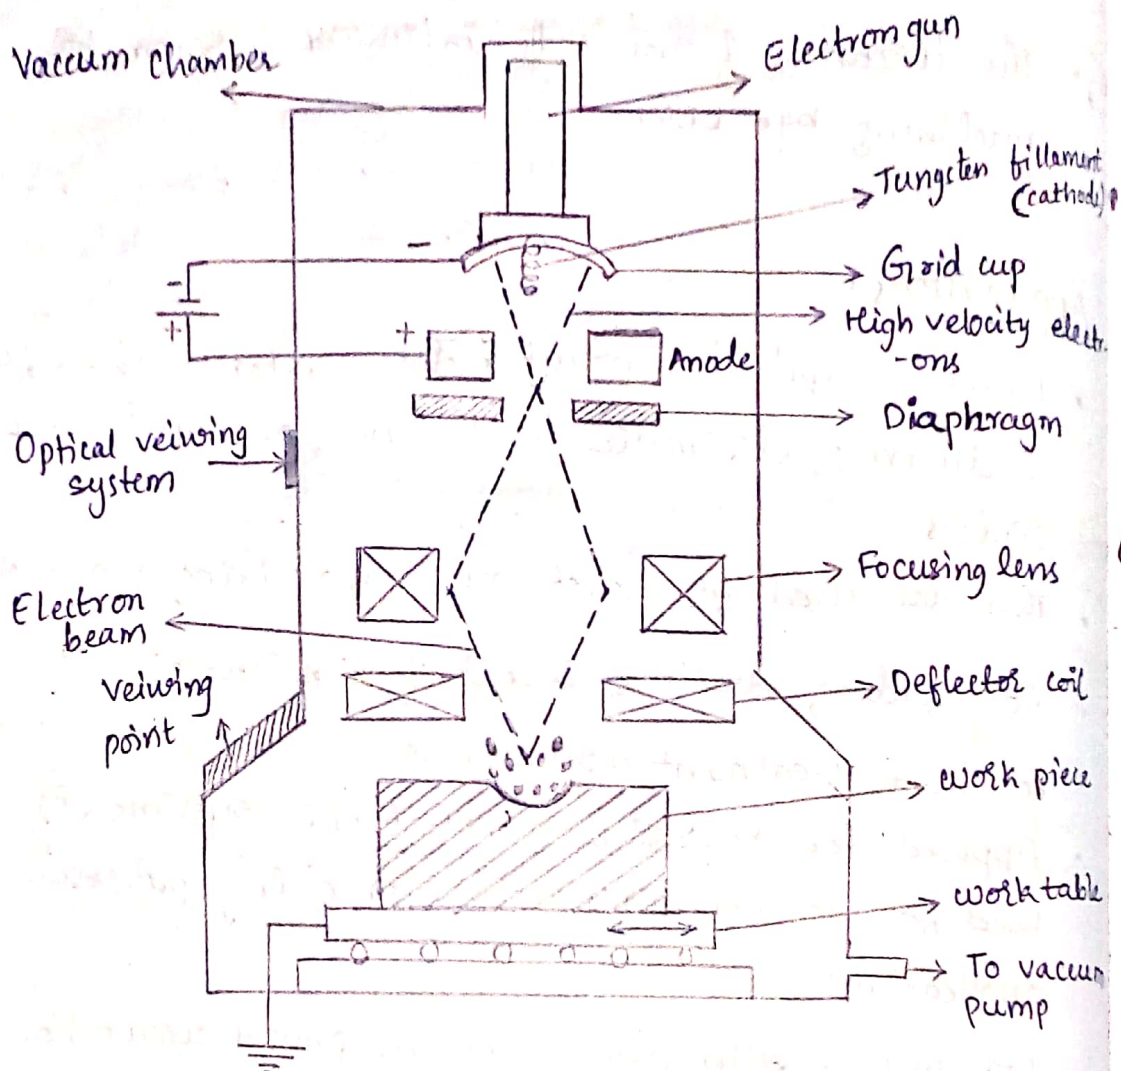 Vaccum Chamber
Electron gun
Tungsten fillament
(cathode)
-
Grid cup
-
+
+
High velocity electr.
-ons
Anode
Diaphragm
Optical veiwing
system
Focusing lens
Electron
beam
Veiwing
point
Deflector coil
work piece
work table
To vacuum
pump